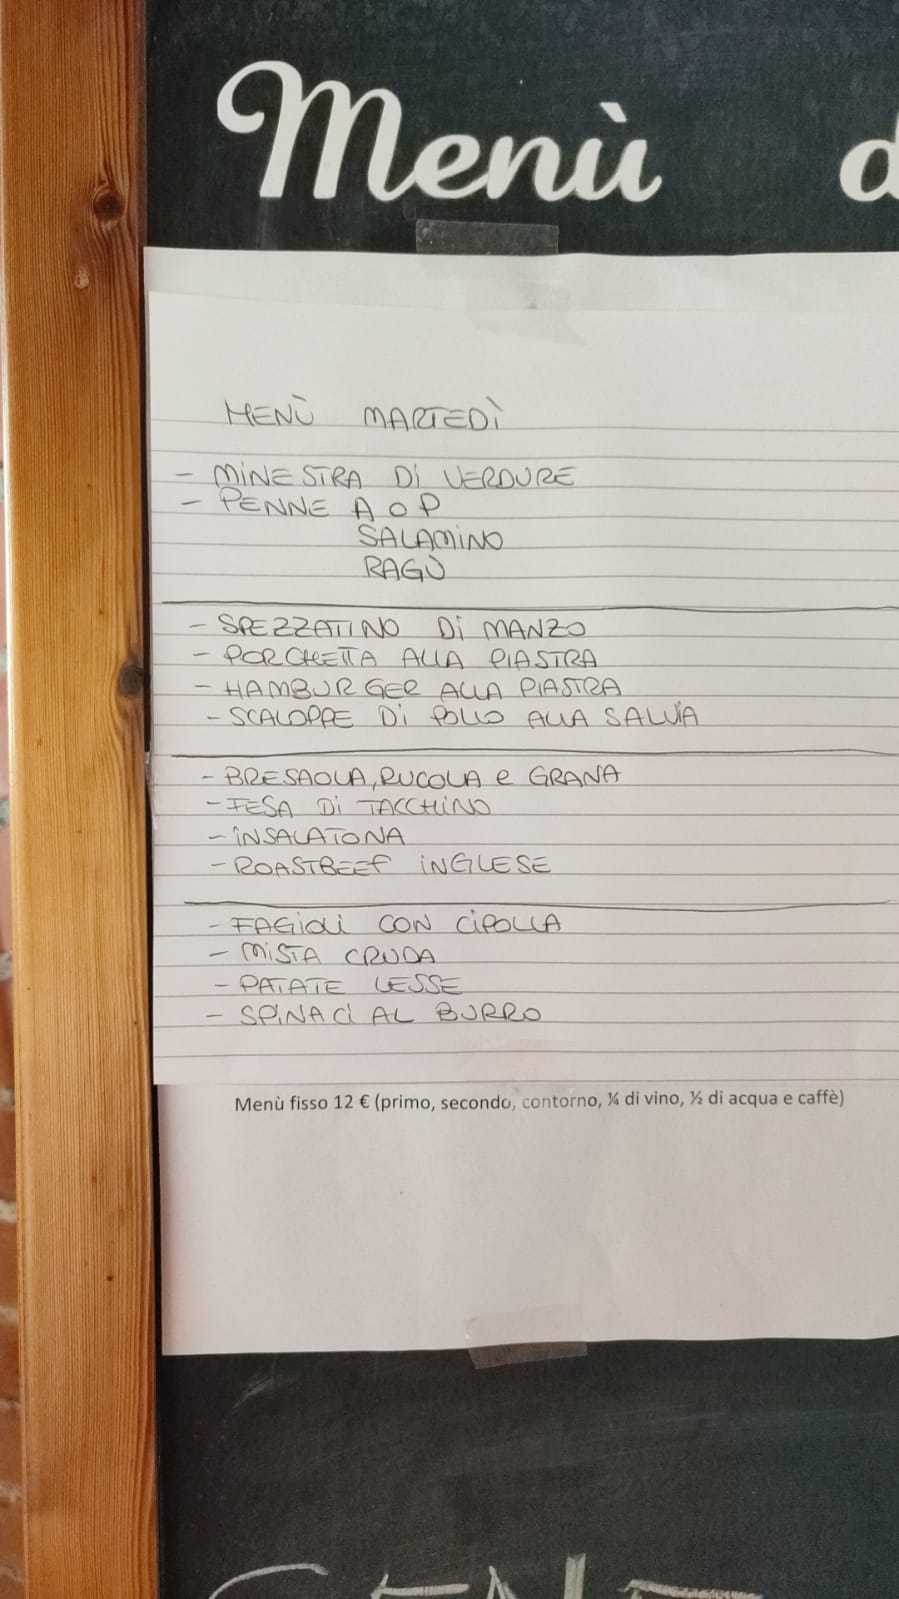 Menù d
MENÙ MARTEDÌ
- MINESTRA DI VERDURE
- PENNE A O P
SALAMINO
RAGÙ
- SPEZZATINO DI MANZO
- PORCHETTA ALLA PIASTRA
- HAMBURGER ALLA PIASTRA
- SCALOPPE DI POLLO ALLA SALVIA
- BRESAOLA, RUCOLA e GRANA
- FESA DI TACCHINO
- INSALATONA
- ROASTBEEF INGLESE
- FAGIOLI CON CIPOLLA
- MISTA CRUDA
- PATATE LESSE
- SPINACI AL BURRO
Menù fisso 12 € (primo, secondo, contorno, ¼ di vino, ½ di acqua e caffè)